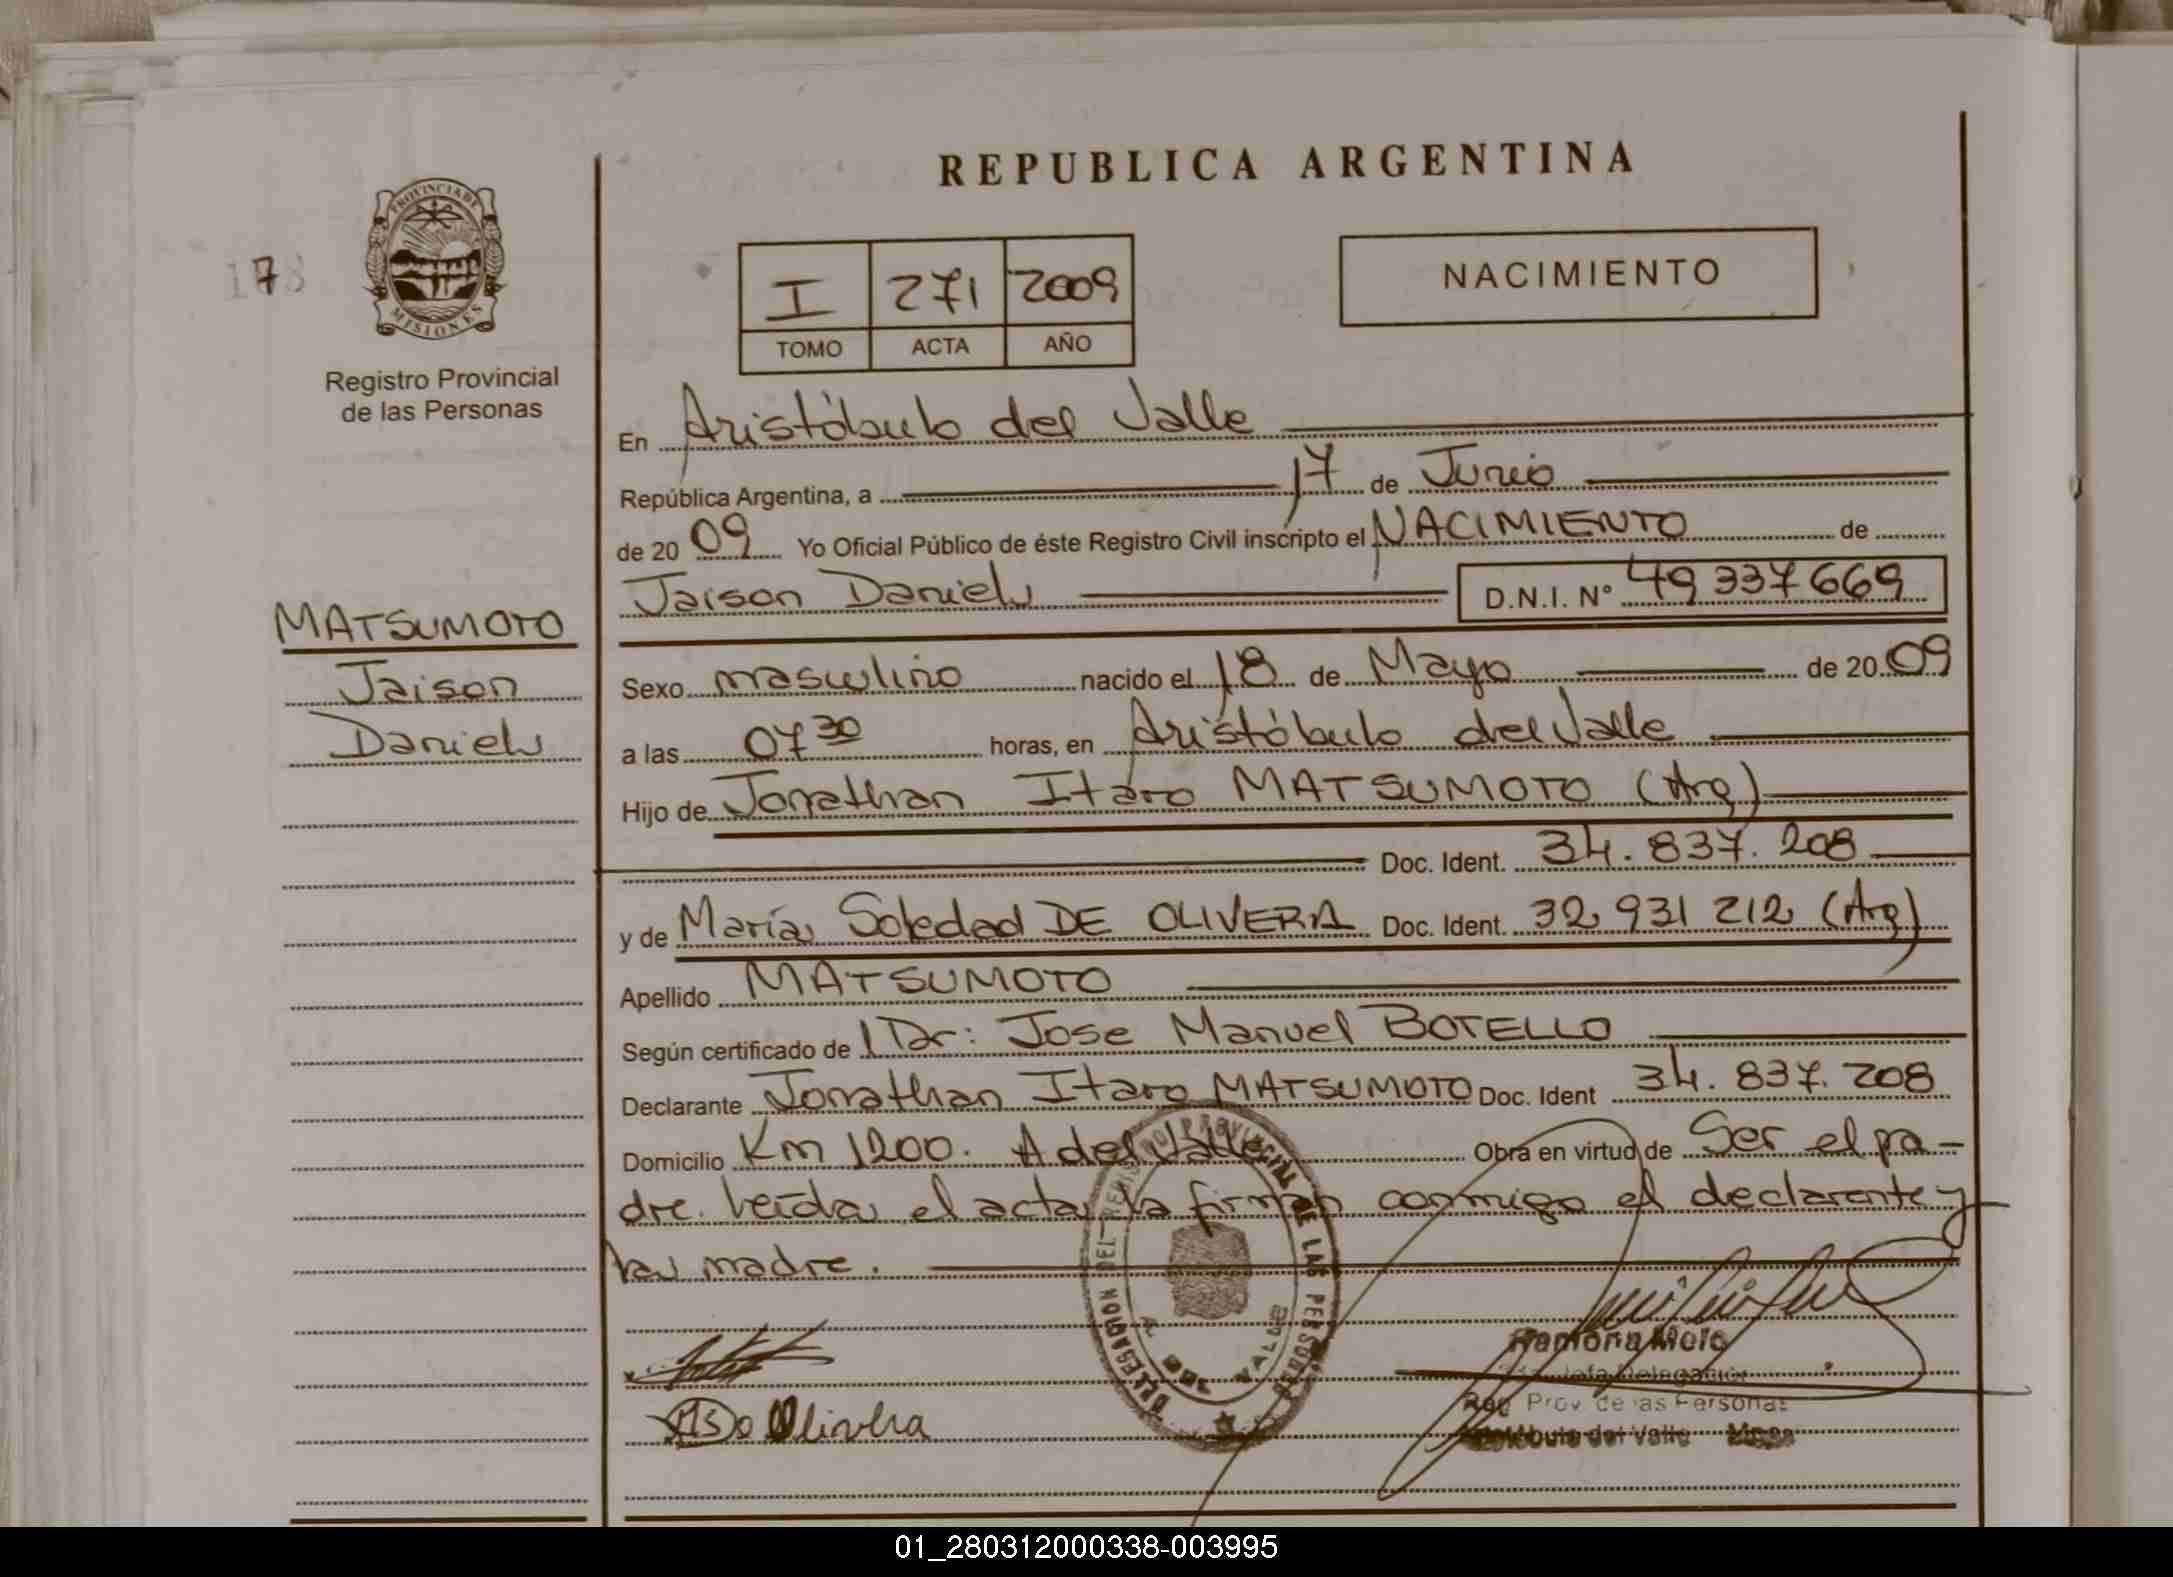 REPUBLICA ARGENTINA
PROVINCIA DE
MISIONES
Registro Provincial
de las Personas
I 271 2009
TOMO ACTA AÑO
NACIMIENTO
En Aristóbulo del Valle
República Argentina, a 17 de Junio
de 2009 Yo Oficial Público de éste Registro Civil inscripto el NACIMIENTO de
Jaison Daniel D.N.I. Nº 49 337 669
MATSUMOTO
Jaison
Daniel
Sexo masculino nacido el 18 de Mayo de 2009
a las 07 30 horas, en Aristóbulo del Valle
Hijo de Jonathan Itaro MATSUMOTO (Arg)
Doc. Ident. 34.837.208
y de María Soledad DE OLIVERA Doc. Ident. 32 931 212 (Arg)
Apellido MATSUMOTO
Según certificado de Dr: Jose Manuel BOTELLO
Declarante Jonathan Itaro MATSUMOTO Doc. Ident 34.837.208
Domicilio Km 1200. A del Valle Obra en virtud de Ser el pa-
dre. leída el acta la firman conmigo el declarante y
la madre.
DELEGACION DEL REGISTRO PROVINCIAL DE LAS PERSONAS
A. DEL VALLE
Ramona Melo
Jefa Delegación
Reg Prov de las Personas
Aristóbulo del Valle
01_280312000338-003995